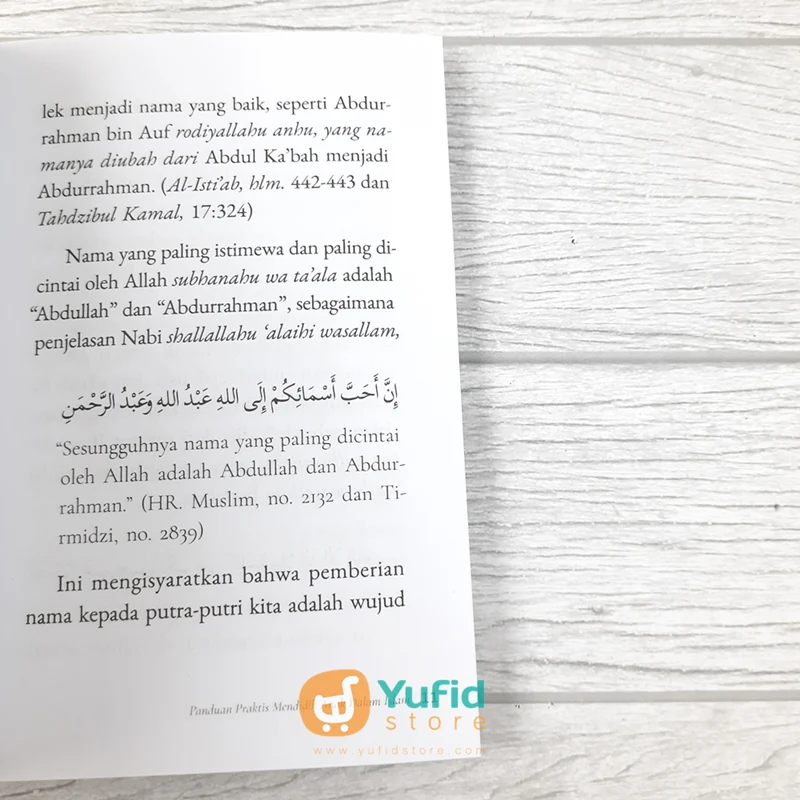 lek menjadi nama yang baik, seperti Abdur-
rahman bin Auf rodiyallahu anhu, yang na-
manya diubah dari Abdul Ka’bah menjadi
Abdurrahman. (Al-Isti’ab, hlm. 442-443 dan
Tahdzibul Kamal, 17:324)
Nama yang paling istimewa dan paling di-
cintai oleh Allah subhanahu wa ta’ala adalah
“Abdullah” dan “Abdurrahman”, sebagaimana
penjelasan Nabi shallallahu ‘alaihi wasallam,
إِنَّ أَحَبَّ أَسْمَائِكُمْ إِلَى اللهِ عَبْدُ اللهِ وَعَبْدُ الرَّحْمَنِ
“Sesungguhnya nama yang paling dicintai
oleh Allah adalah Abdullah dan Abdur-
rahman.” (HR. Muslim, no. 2132 dan Ti-
rmidzi, no. 2839)
Ini mengisyaratkan bahwa pemberian
nama kepada putra-putri kita adalah wujud
Panduan Praktis
Yufid
store
www.yufidstore.com